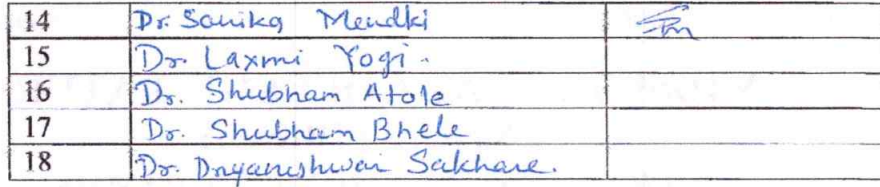 14 Dr. Sanika Mendki
15 Dr. Laxmi Yogi.
16 Dr. Shubham Atole
17 Dr. Shubham Bhele
18 Dr. Dnyaneshwari Sakhare.